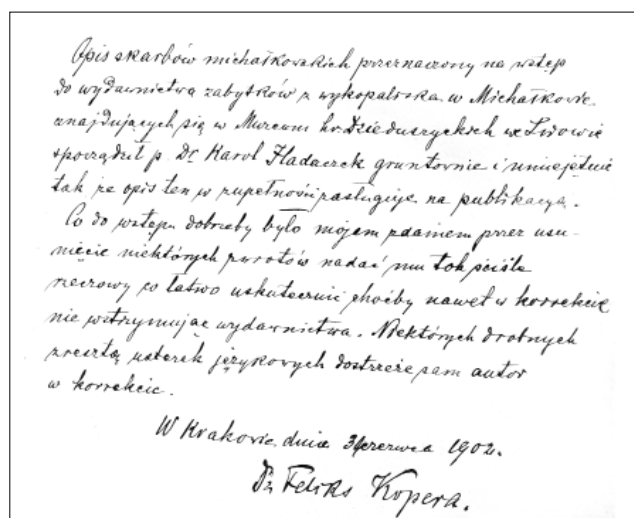 Opis skarbów michałkowskich przeznaczony na wstęp
do wydawnictwa zabytków z wykopaliska w Michałkowie
znajdujących się w Muzeum hr. Dzieduszyckich we Lwowie
sporządził p. Dr Karol Hadaczek gruntownie i umiejętnie
tak że opis ten w zupełności zasługuje na publikacyą.
Co do wstępu dobrzeby było mojem zdaniem przez usu-
nięcie niektórych zwrotów nadać mu tok ściśle
rzeczowy co łatwo uskutecznić choćby nawet w korrekcie
nie wstrzymując wydawnictwa. Niektórych drobnych
zresztą usterek językowych dostrzeże sam autor
w korrekcie.
W Krakowie dnia czerwca 1902.
Dr Feliks Kopera.